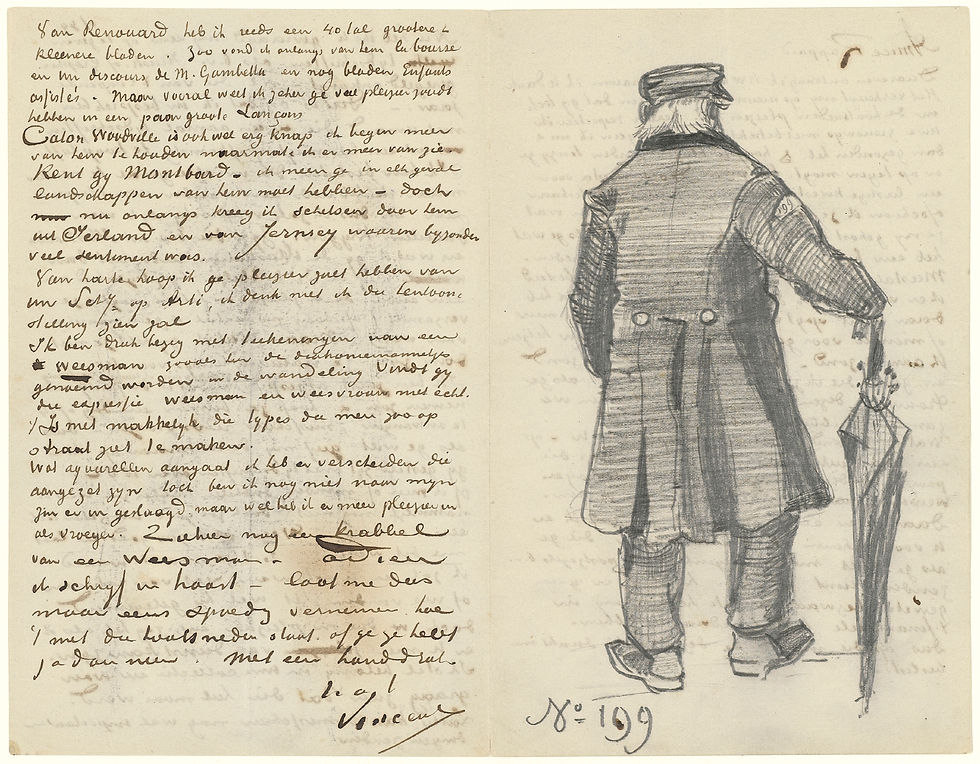 Van Renouard heb ik reeds een 40 tal grootere &
kleenere bladen. Zoo vond ik onlangs van hem la bourse
en un discours de M. Gambetta en nog bladen Enfants
assistés. Maar vooral weet ik zeker ge veel pleizier zoudt
hebben in een paar groote Lançons
Caton Woodville is ook wel erg knap ik begin meer
van hem te houden naarmate ik er meer van zie
Kent gij Montbard – ik meen ge in elk geval
landschappen van hem moet hebben – doch
nu onlangs kreeg ik schetsen door hem
uit Ierland en van Jersey waarin byzonder
veel sentiment was.
Van harte hoop ik ge pleizier zult hebben van
uw op Arti, ik denk niet ik die tentoon-
stelling zien zal
Ik ben druk bezig met teekeningen van een
weesman zooals hier de diaconiemannetjes
genoemd worden in de wandeling Vindt gij
die expressie weesman en weesvrouw niet echt.
't Is niet makkelyk die types die men zoo op
straat ziet te maken.
Wat aquarellen aangaat ik heb er verscheiden die
aangezet zyn toch ben ik nog niet naar myn
zin er in geslaagd maar wel heb ik er meer pleizier in
als vroeger. Ziehier nog een krabbel
van een Weesman – adieu
ik schryf in haast – laat me dus
maar eens spoedig vernemen hoe
't met die houtsneden staat. of ge ze hebt
ja dan neen. Met een handdruk
t. à t.
Vincent
199
No 199